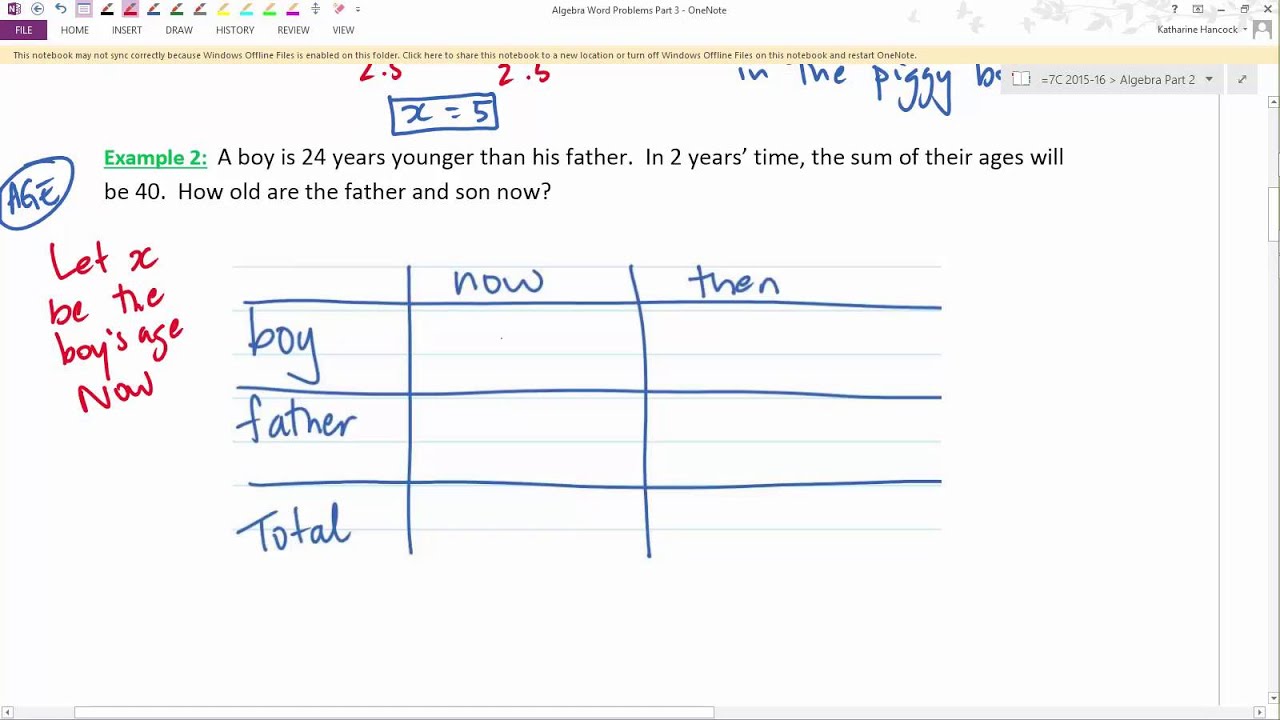 Algebra Word Problems Part 3 - OneNote
FILE HOME INSERT DRAW HISTORY REVIEW VIEW
Katharine Hancock
This notebook may not sync correctly because Windows Offline Files is enabled on this folder. Click here to share this notebook to a new location or turn off Windows Offline Files on this notebook and restart OneNote.
=7C 2015-16 > Algebra Part 2
2.5 2.5
in the piggy
x = 5
Example 2: A boy is 24 years younger than his father. In 2 years' time, the sum of their ages will
be 40. How old are the father and son now?
AGE
Let x
be the
boy's age
Now
now then
boy
father
Total